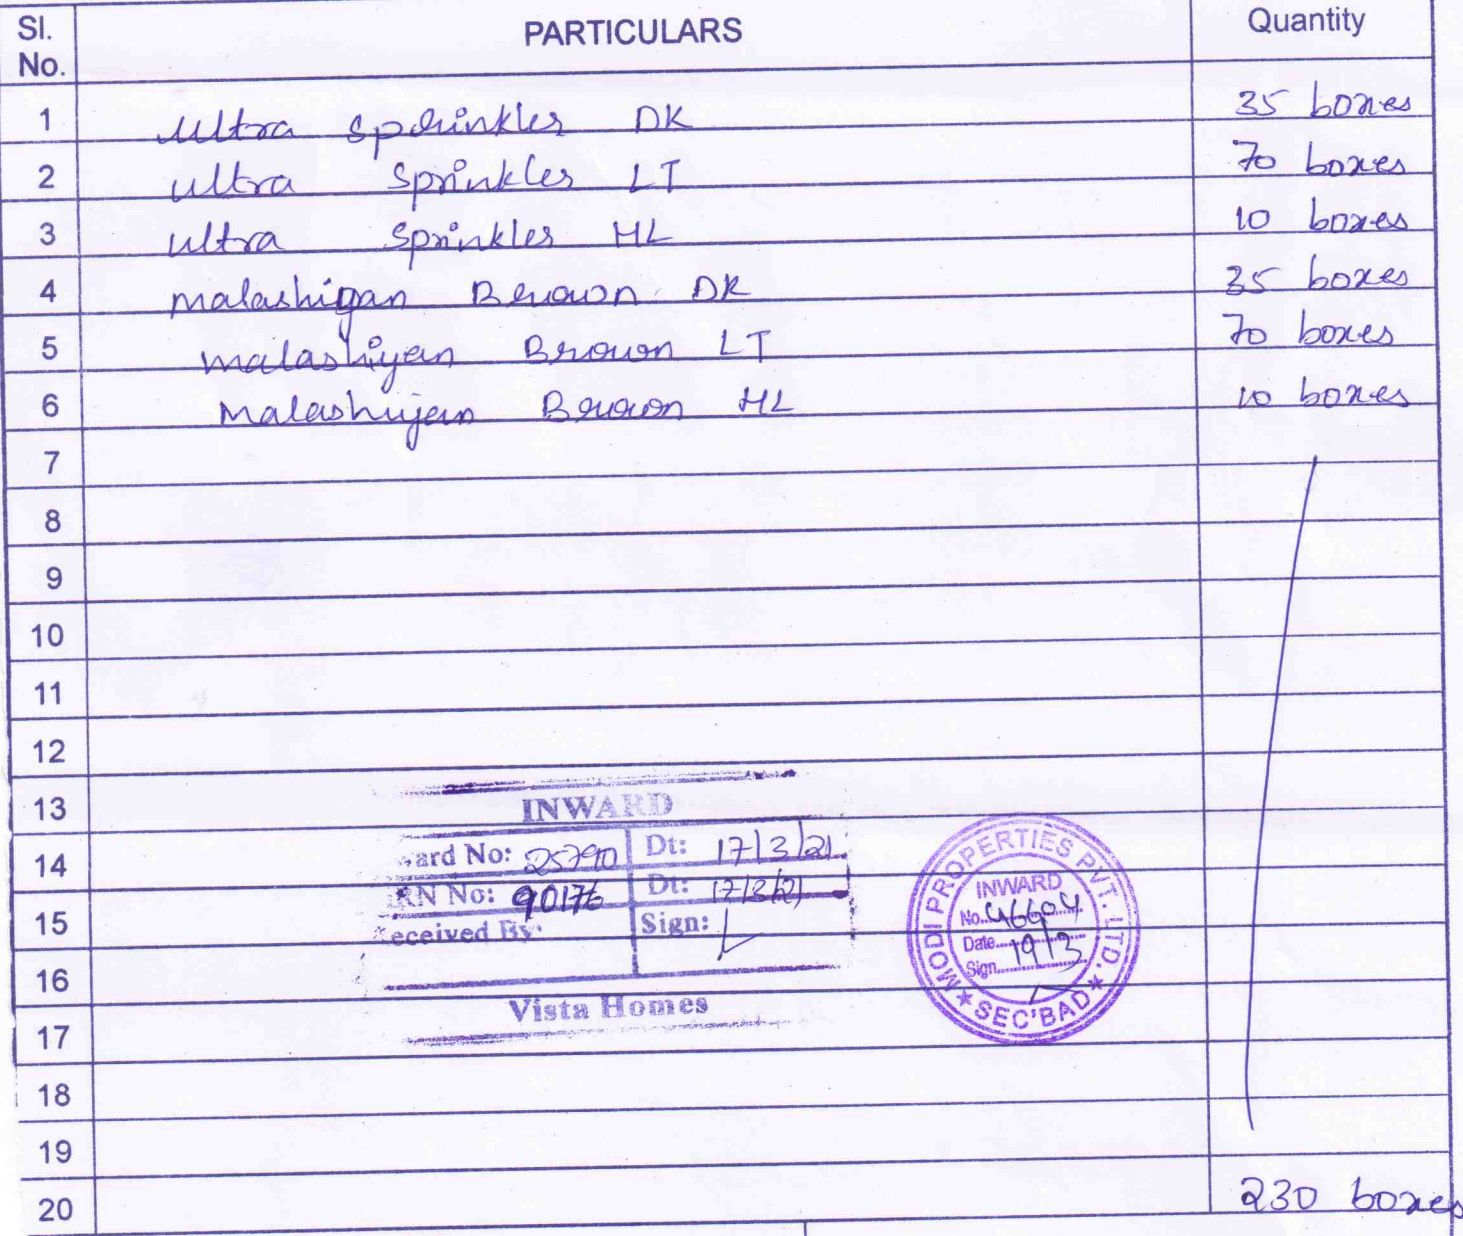 Sl. No. PARTICULARS Quantity
1 ultra sprinkler DK 35 boxes
2 ultra sprinkles LT 70 boxes
3 ultra sprinkles HL 10 boxes
4 malashigan Brown DK 35 boxes
5 malashiyan Brown LT 70 boxes
6 Malashiyan Brown HL 10 boxes
7
8
9
10
11
12
13
14
15
16
17
18
19
20 230 boxes
INWARD
ard No: 25790 Dt: 17/3/21
RN No: 90176 Dt: 17/3/21
eceived By: Sign:
Vista Homes
MODI PROPERTIES PVT. LTD.
INWARD
No. 46604
Date 19/3
Sign
★ SEC'BAD ★